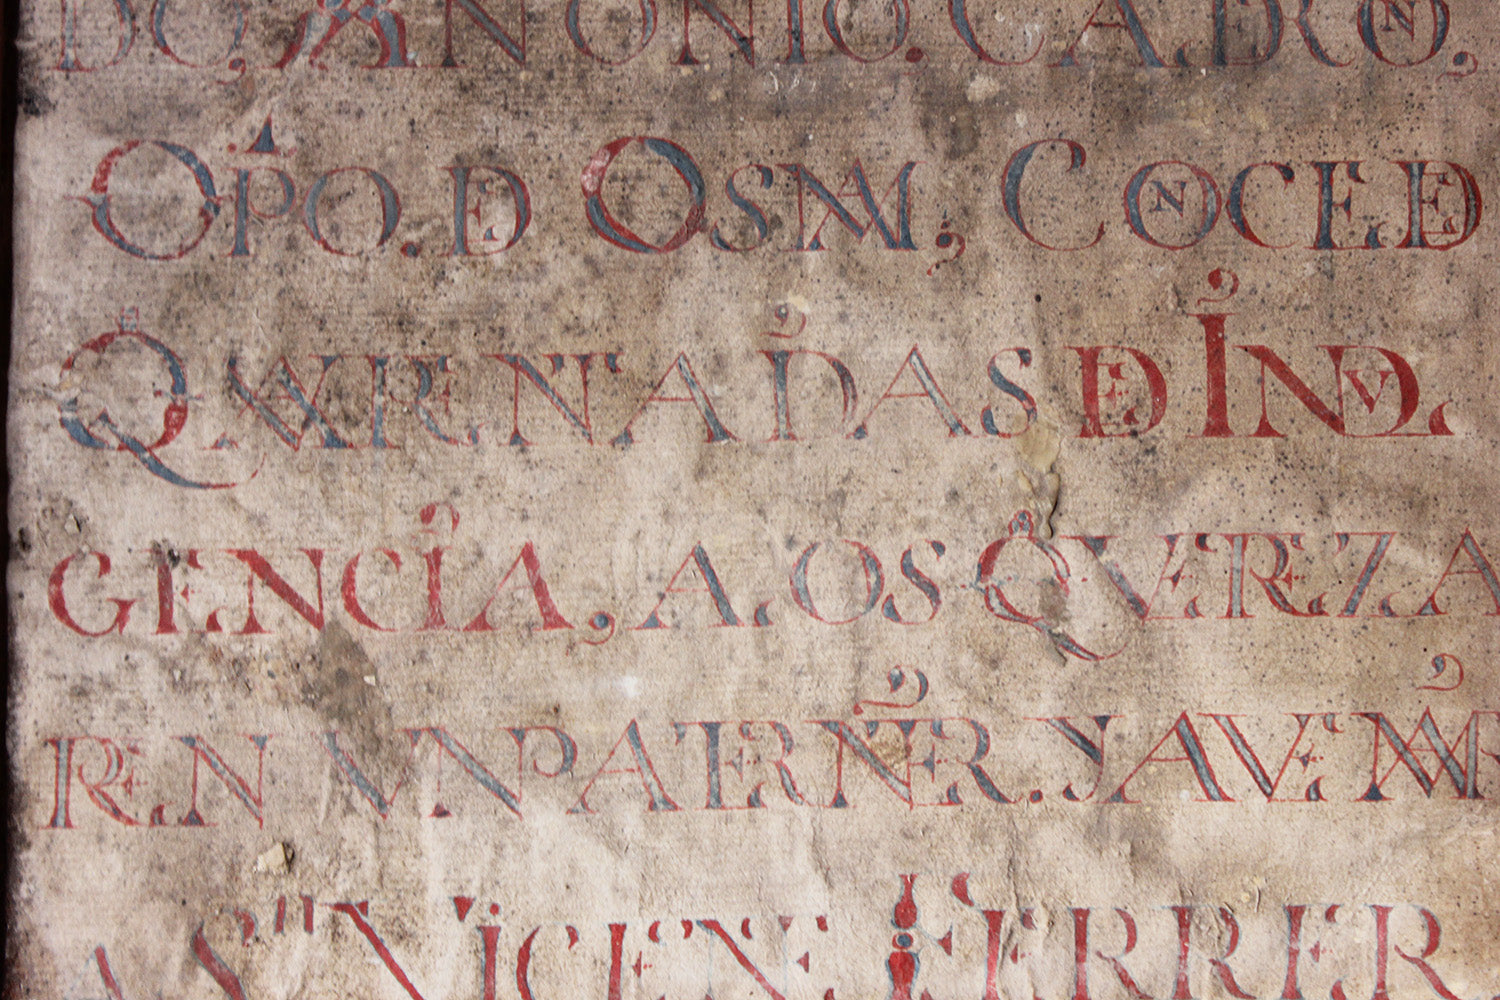 DO, ANTONIO. CADRON,
OPO. DE OSMA; CONCEDE
QUARENTA DIAS DE INDUL
GENCIA, A. LOS Q VE REZA
REN UN PATER NTER. Y AVE MAR
A Sn VICENE FERRER